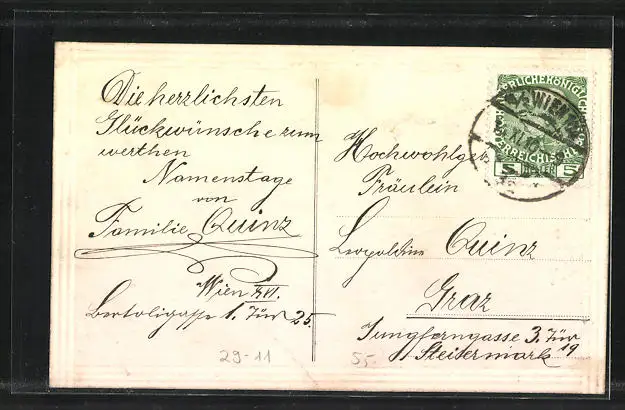 Die herzlichsten
Glückwünsche zum
werthen
Namenstage
von
Familie Quinz
Wien XVI.
Bertoligasse 1. Tür 25.
29-11
Hochwohlgeb.
Fräulein
Leopoldine Quinz
Graz
Jungferngasse 3. Tür
19
Steiermark
55-
WIEN
XI. 10
5 HELLER 5